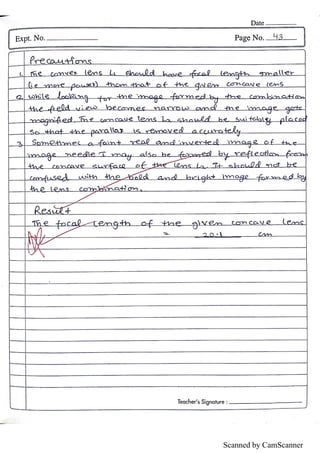 Date
Expt. No.
Page No. 43
Precautions
1. The convex lens L1 should have focal length smaller
(ie more power) than that of the given concave lens
2. while looking for the image formed by the combination
the field view becomes narrow and the image gets
magnified. The concave lens L2 should be suitably placed
so that the parallax is removed accurately
3. Sometimes a faint real and inverted image of the
image needle I may also be formed by reflection from
the concave surface of the lens L2. It should not be
confused with the bold and bright image formed by
the lens combination.
Result
The focal length of the given concave lens
= 20.1 cm
Teacher's Signature :
Scanned by CamScanner